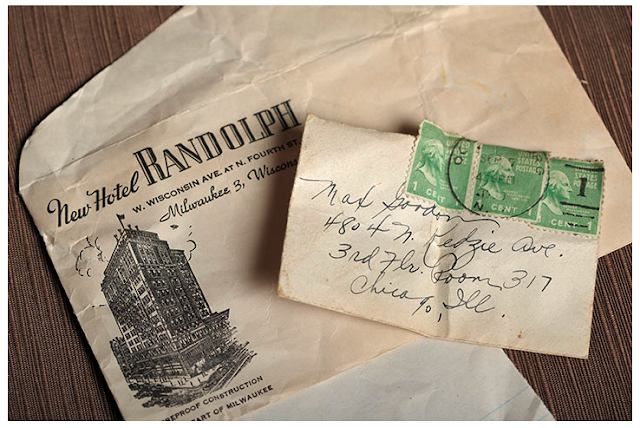 New Hotel RANDOLPH
W. WISCONSIN AVE. AT N. FOURTH ST.
Milwaukee 3, Wiscons
REPROOF CONSTRUCTION
ART OF MILWAUKEE
Max Gordon
4804 N. Kedzie Ave.
3rd Flr. Room 317
Chicago, Ill.
1 CENT
CENT
CENT 1
UNITED STATES POSTAGE
1